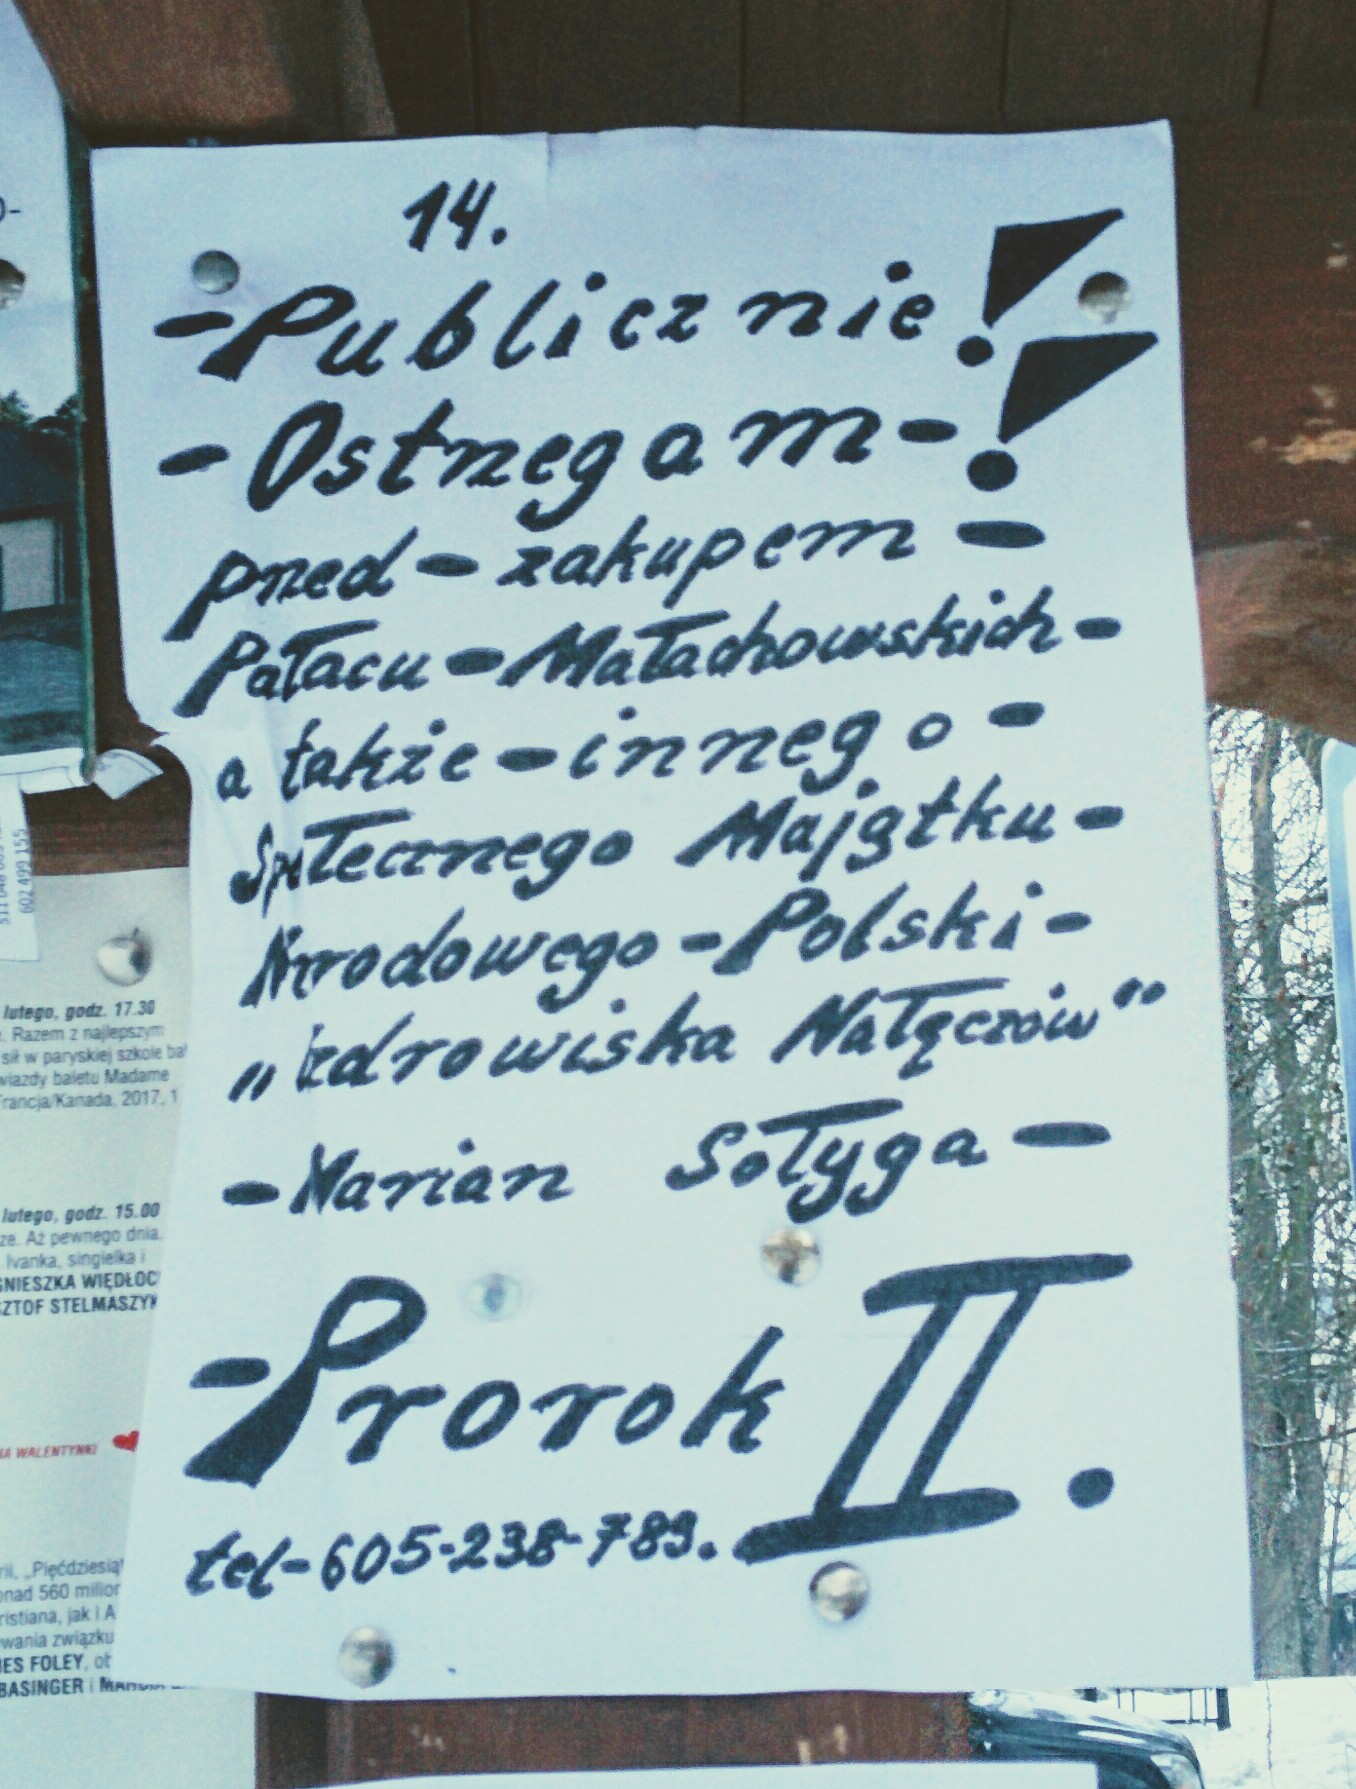 14.
-Publicznie!
-Ostrzegam-!
przed-zakupem-
Pałacu-Małachowskich-
a także-innego-
Społecznego Majątku-
Narodowego-Polski-
„Uzdrowiska Nałęczów"
-Marian Sołyga-
-Prorok II.
tel-605-238-789.
602 499 155
lutego, godz. 17.30
. Razem z najlepszym
sił w paryskiej szkole bal
wiazdy baletu Madame
Francja/Kanada, 2017, 1
lutego, godz. 15.00
ze. Aż pewnego dnia,
Ivanka, singielka i
GNIESZKA WIĘDŁOC
SZTOF STELMASZYK
NA WALENTYNKI
rii, „Pięćdziesiąt
onad 560 milion
ristiana, jak i A
wania związku
NES FOLEY, ot
BASINGER i